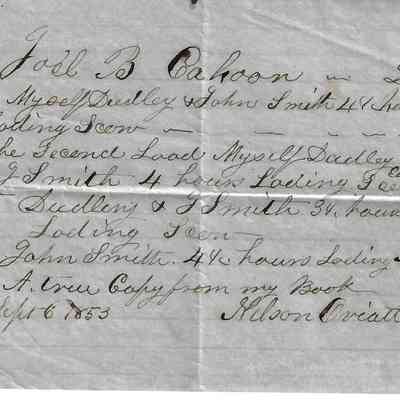 Joel B Cahoon
Myself Dudley & John Smith 4½ ho
Loding Scow
the Second Load Myself Dudley
J Smith 4 hours Loding
Dudley & J Smith 3½ hours
Loding Scow
John Smith 4½ hours Loding
A true Copy from my Book
Sept 6 1853 Nelson Oviatt